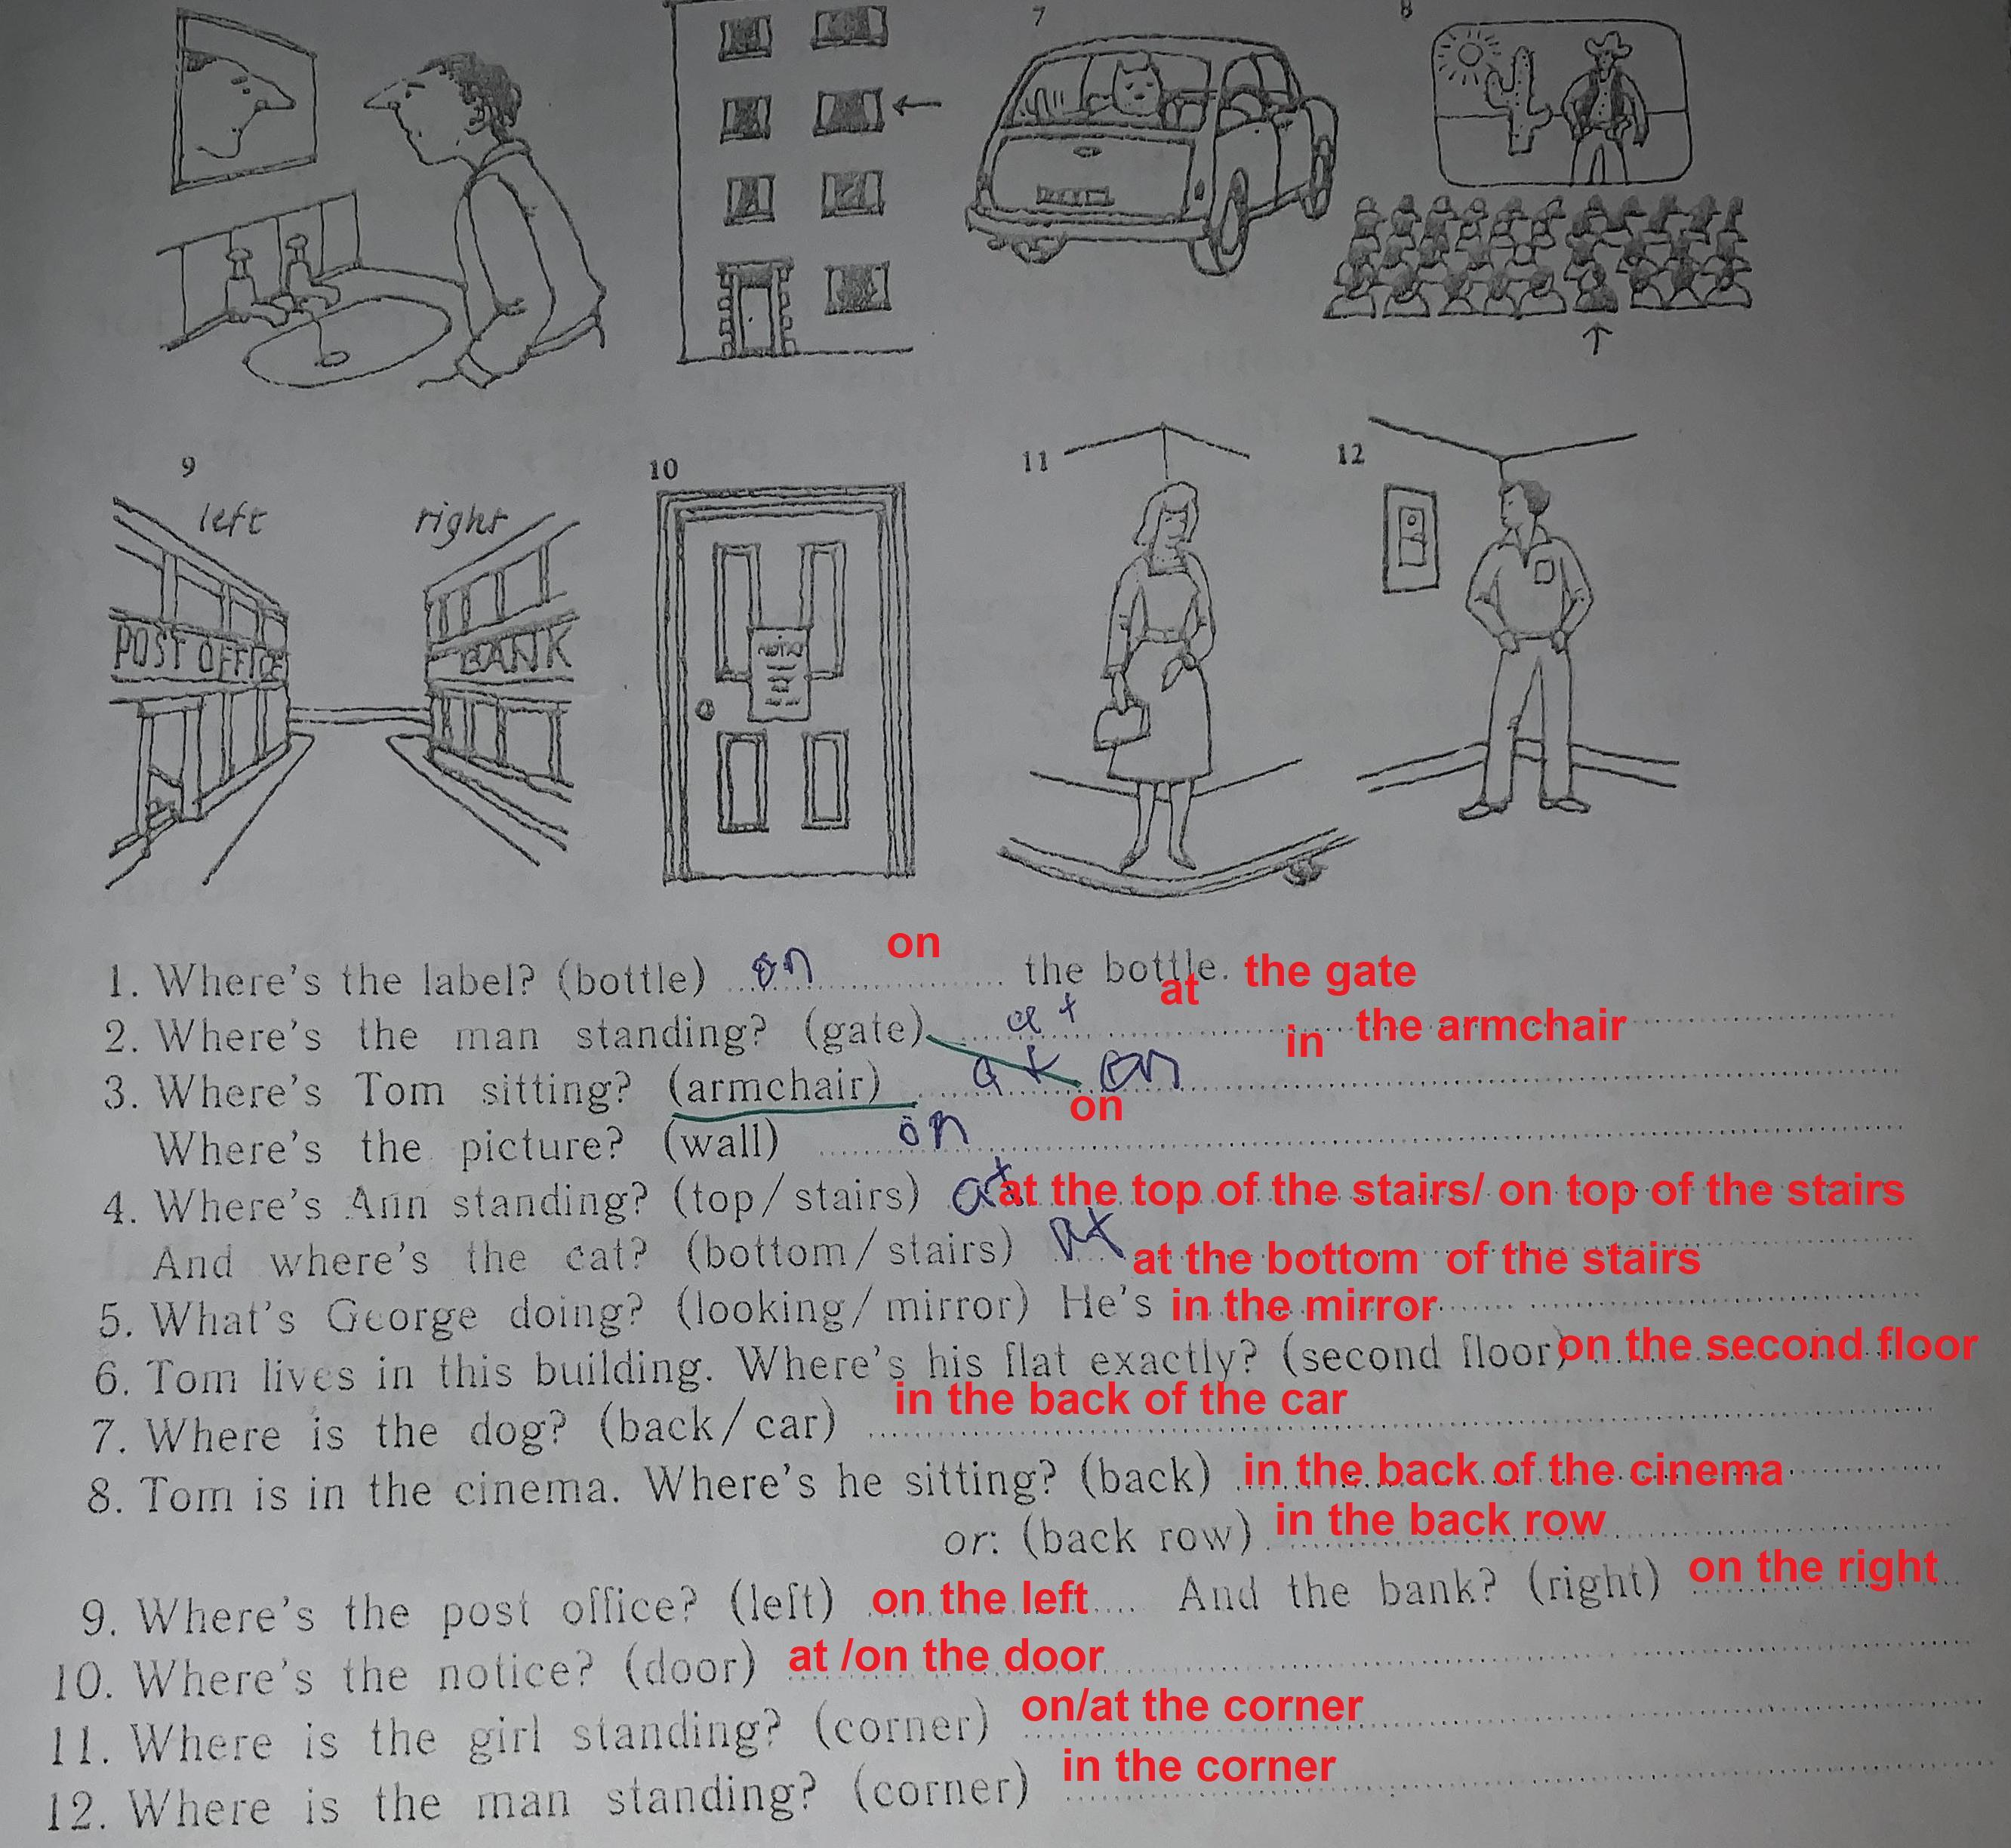 7 8
9 10 11 12
left right
POST OFFICE BANK
NOTICE
1. Where's the label? (bottle) on on the bottle. the gate
2. Where's the man standing? (gate) at at the armchair
3. Where's Tom sitting? (armchair) at on in
Where's the picture? (wall) on on
4. Where's Ann standing? (top/stairs) at at the top of the stairs/ on top of the stairs
And where's the cat? (bottom/stairs) At at the bottom of the stairs
5. What's George doing? (looking/mirror) He's in the mirror
6. Tom lives in this building. Where's his flat exactly? (second floor) on the second floor
7. Where is the dog? (back/car) in the back of the car
8. Tom is in the cinema. Where's he sitting? (back) in the back of the cinema
or: (back row) in the back row
9. Where's the post office? (left) on the left And the bank? (right) on the right
10. Where's the notice? (door) at /on the door
11. Where is the girl standing? (corner) on/at the corner
12. Where is the man standing? (corner) in the corner